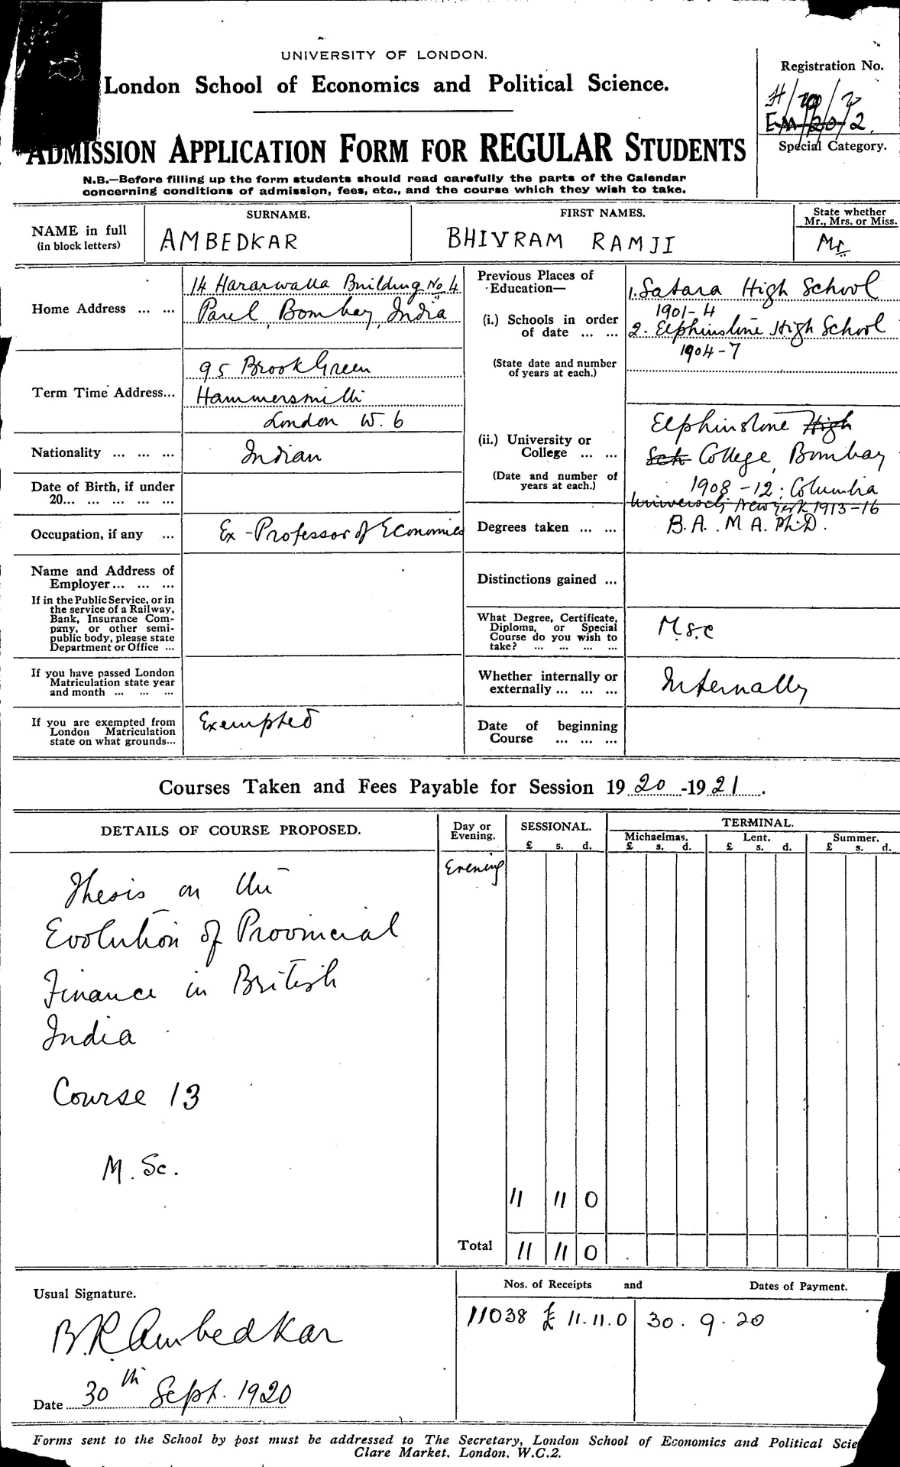 UNIVERSITY OF LONDON.
London School of Economics and Political Science.
Registration No.
H/20/2
EM/20/2.
Special Category.
ADMISSION APPLICATION FORM FOR REGULAR STUDENTS
N.B.—Before filling up the form students should read carefully the parts of the Calendar
concerning conditions of admission, fees, etc., and the course which they wish to take.
NAME in full
(in block letters)
SURNAME.
AMBEDKAR
FIRST NAMES.
BHIVRAM RAMJI
State whether
Mr., Mrs. or Miss.
Mr
Home Address ... ...
14 Hararwalla Building No 4
Parel, Bombay, India
Term Time Address...
95 Brook Green
Hammersmith
London W. 6
Nationality ... ... ...
Indian
Date of Birth, if under
20... ... ... ... ...
Occupation, if any ...
Ex-Professor of Economics
Name and Address of
Employer... ... ...
If in the Public Service, or in
the service of a Railway,
Bank, Insurance Com-
pany, or other semi-
public body, please state
Department or Office ...
If you have passed London
Matriculation state year
and month ... ... ...
If you are exempted from
London Matriculation
state on what grounds...
Exempted
Previous Places of
Education—
(i.) Schools in order
of date ... ...
(State date and number
of years at each.)
1. Satara High School
1901-4
2. Elphinstone High School
1904-7
(ii.) University or
College ... ...
(Date and number of
years at each.)
Elphinstone High
Sch College, Bombay
1908-12: Columbia
University New York 1913-16
Degrees taken ... ...
B.A. M A. Ph.D.
Distinctions gained ...
What Degree, Certificate,
Diploma, or Special
Course do you wish to
take? ... ... ... ...
M.Sc
Whether internally or
externally ... ... ...
Internally
Date of beginning
Course ... ... ...
Courses Taken and Fees Payable for Session 1920-1921.
DETAILS OF COURSE PROPOSED.
Day or
Evening.
SESSIONAL.
£ s. d.
TERMINAL.
Michaelmas. Lent. Summer.
£ s. d. £ s. d. £ s. d.
Evening
Thesis on the
Evolution of Provincial
Finance in British
India
Course 13
M. Sc.
11 11 0
Total 11 11 0
Usual Signature.
B. R Ambedkar
Date 30th Sept. 1920
Nos. of Receipts and Dates of Payment.
11038 £ 11.11.0 30.9.20
Forms sent to the School by post must be addressed to The Secretary, London School of Economics and Political Scie
Clare Market, London, W.C.2.